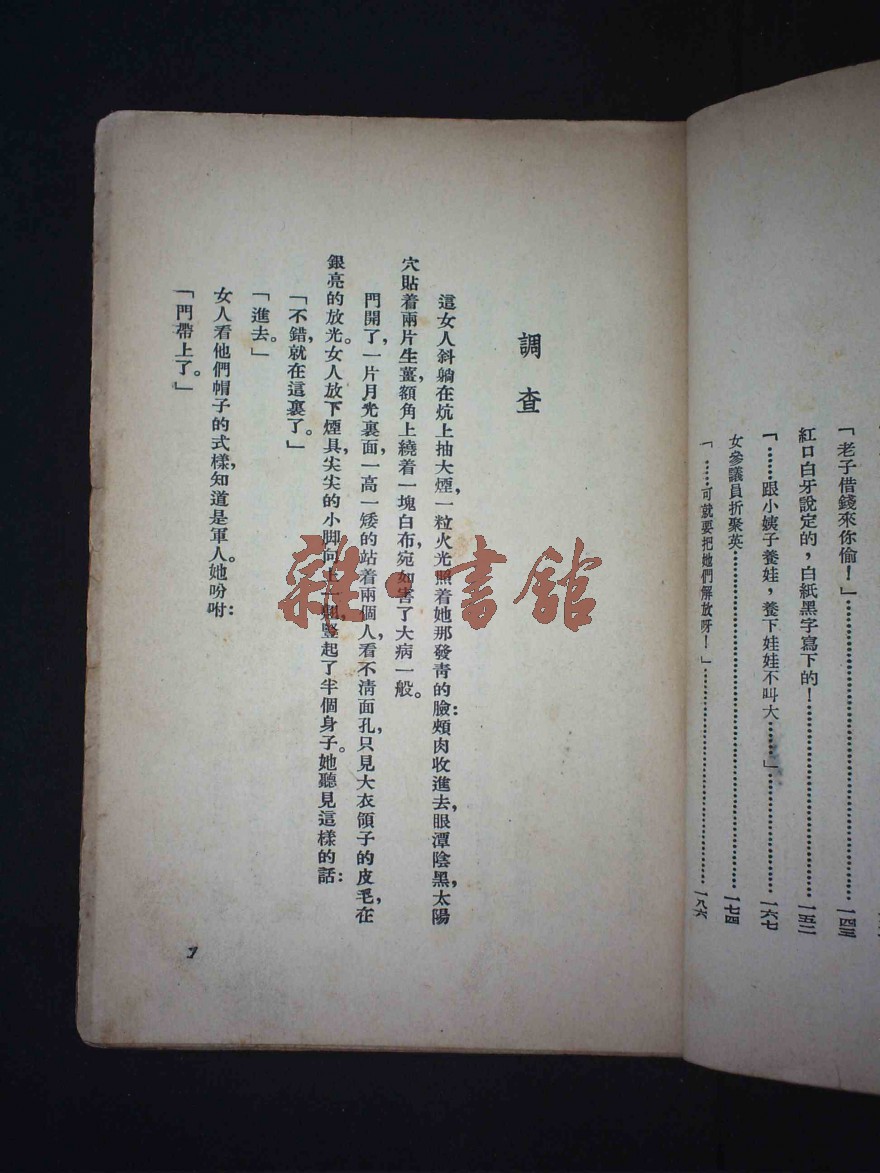 「老子借錢來你偷！」……一四三
紅口白牙說定的，白紙黑字寫下的！……一五二
「……跟小姨子養娃，養下娃娃不叫大……」……一六七
女參議員折聚英……一七四
「……可就要把她們解放呀！」……一八六
調查
這女人斜躺在炕上抽大煙，一粒火光照着她那發青的臉：頰肉收進去，眼潭陰黑，太陽
穴貼着兩片生薑，額角上繞着一塊白布，宛如害了大病一般。
門開了，一片月光裏面，一高一矮的站着兩個人，看不清面孔，只見大衣領子的皮毛，在
銀亮的放光。女人放下煙具，尖尖的小脚向上一翹，豎起了半個身子。她聽見這樣的話：
「不錯，就在這裏了。」
「進去。」
女人看他們帽子的式樣，知道是軍人。她吩咐：
「門帶上了。」
1
雜·書館